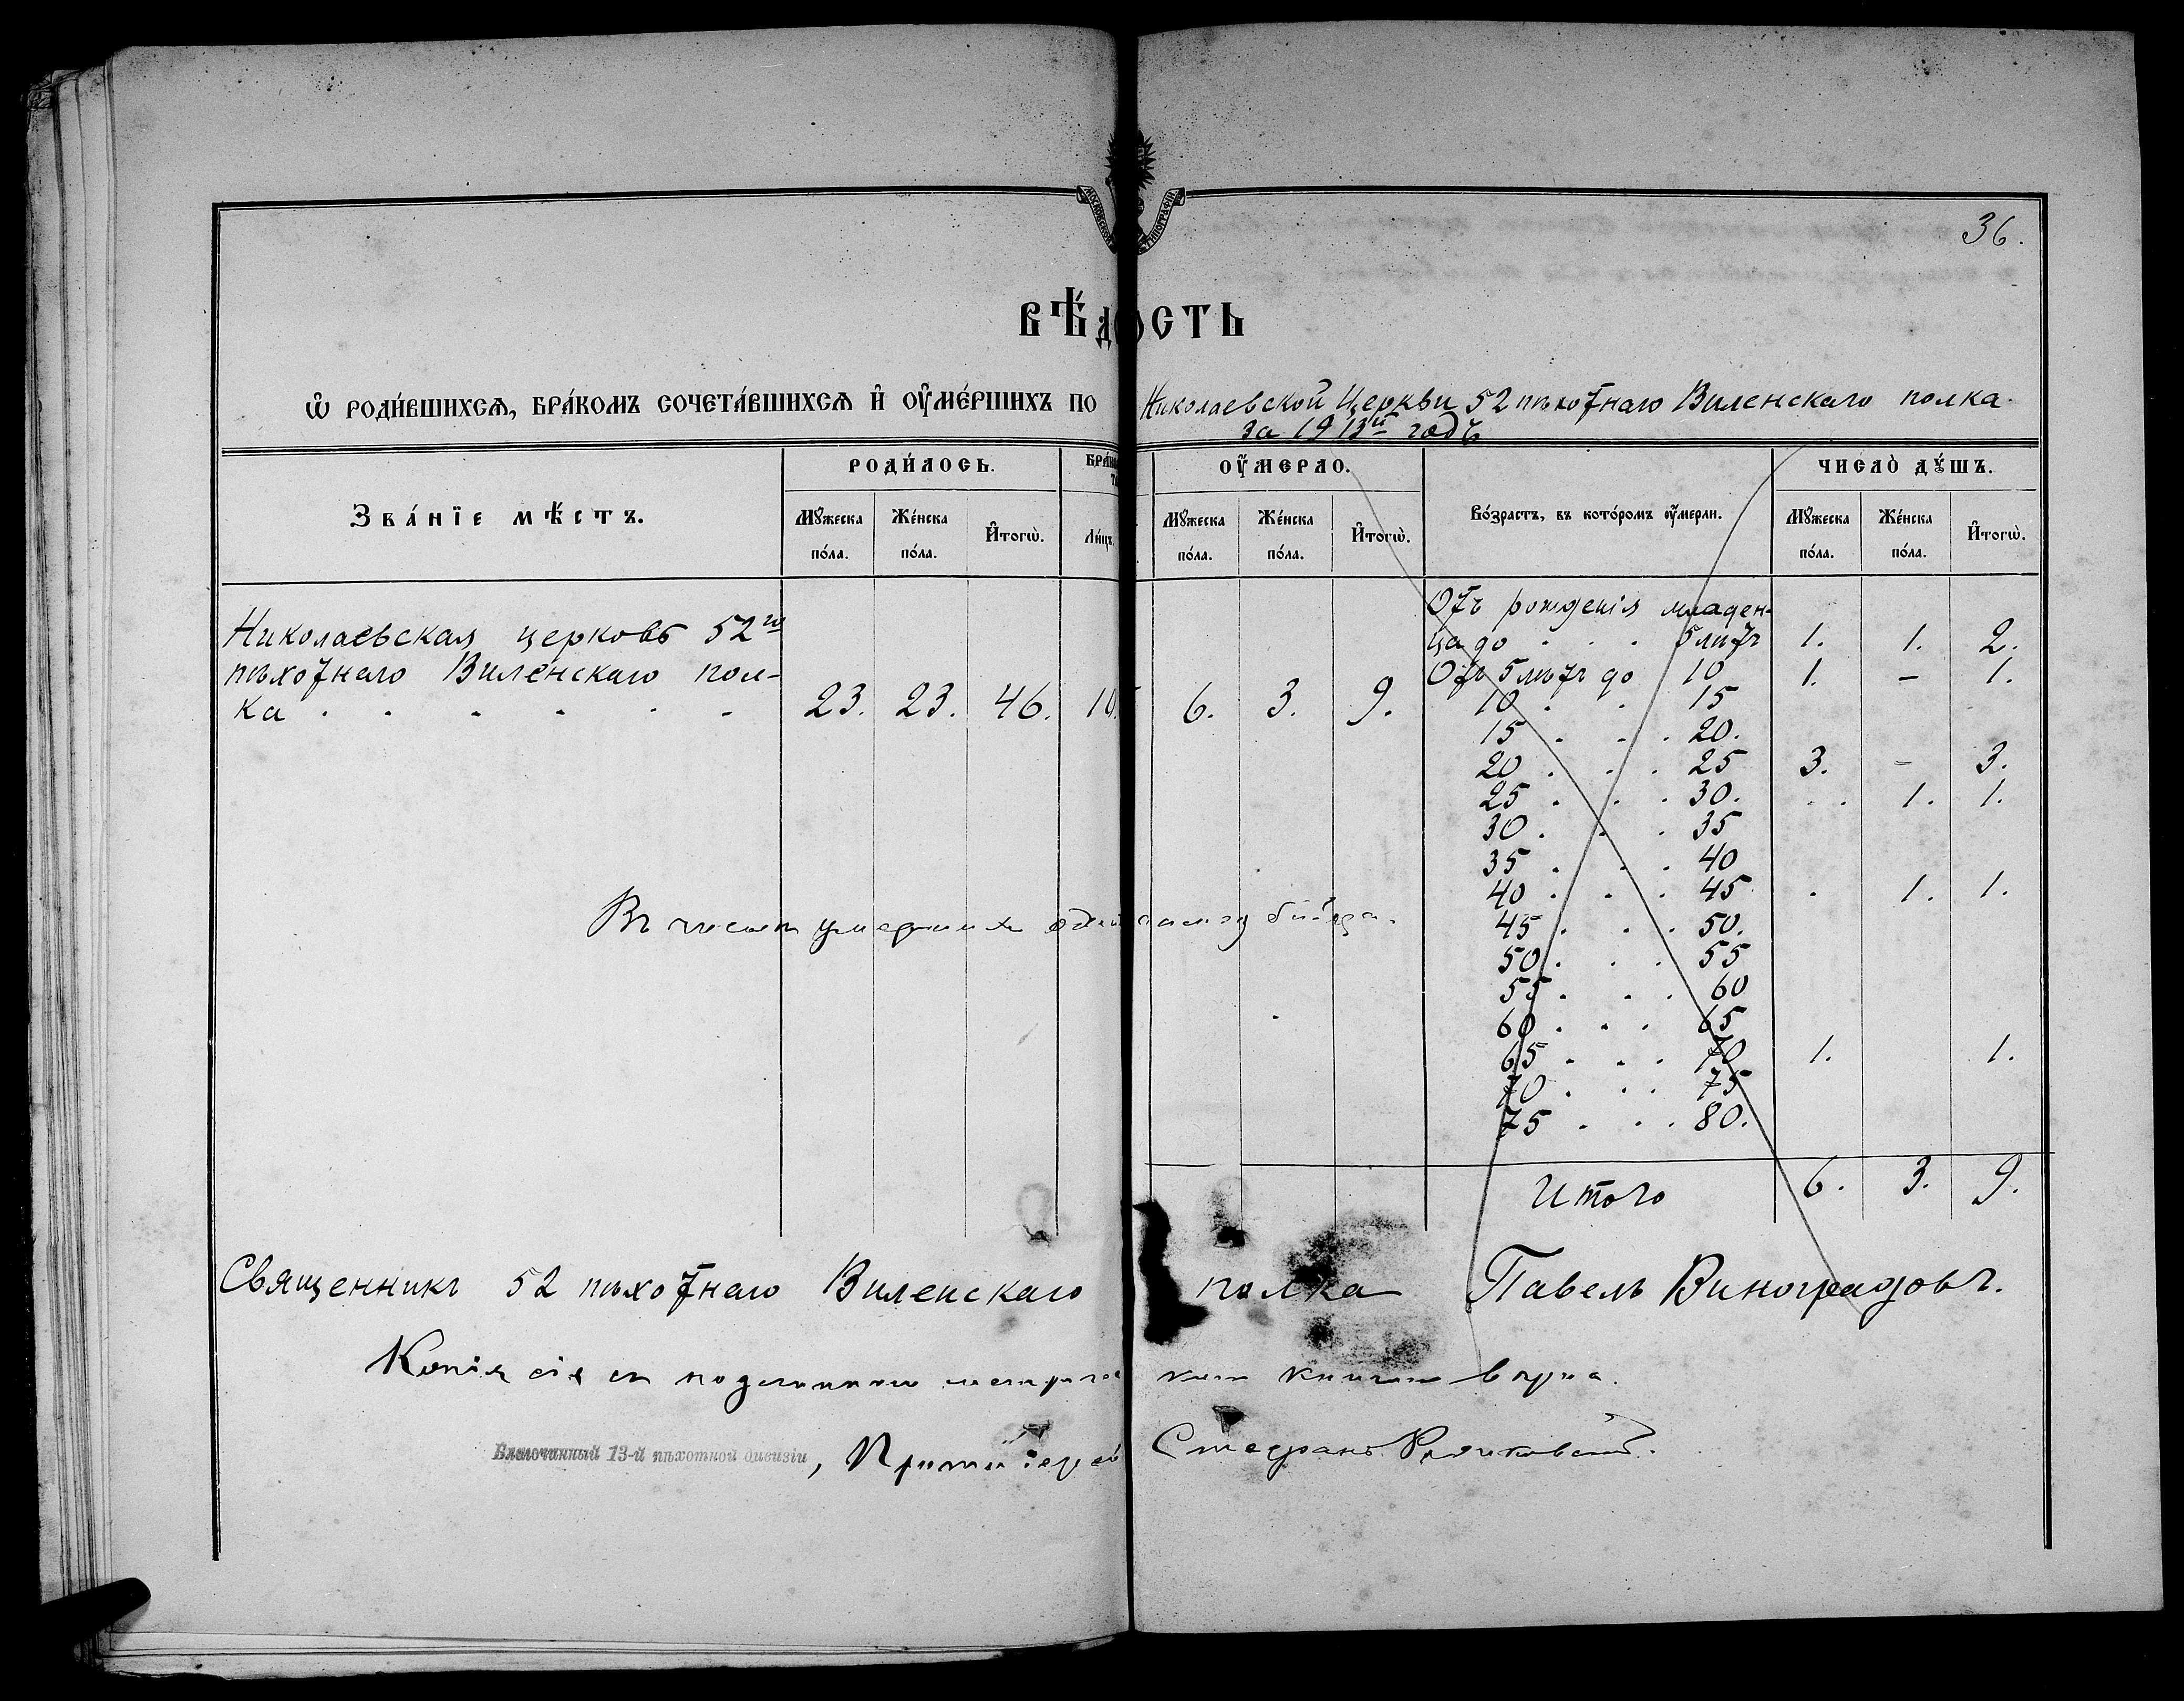 36.
ВѢ́ДОСТЬ
Ѿ РОДИ́ВШИХСѦ, БРА́КОМЪ СОЧЕТА́ВШИХСѦ И҆ ОУ҆МЕ́РШИХЪ ПО Николаевской Церкви 52 пѣхотнаго Виленскаго полка.
за 1913й годъ
Зва́нїе мѣ́стъ.
РОДИ́ЛОСЬ.
Мꙋ́жеска по́ла.
Же́нска по́ла.
И҆тогѡ̀.
Ли́цъ.
ОУ҆МЕРЛО.
Мꙋ́жеска по́ла.
Же́нска по́ла.
И҆тогѡ̀.
Во́зрастъ, въ кото́ромъ оу҆мерли.
ЧИСЛО̀ ДꙊ́ШЪ.
Мꙋ́жеска по́ла.
Же́нска по́ла.
И҆тогѡ̀.
Николаевская церковь 52го
пѣхотнаго Виленскаго пол-
ка . . . . . . 23. 23. 46. 10. 6. 3. 9.
Отъ рожденія младен-
ца до . . . 5 лѣтъ 1. 1. 2.
Отъ 5 лѣтъ до 10 1. – 1.
10 . . 15
15 . . . 20.
20 . . . 25 3. – 3.
25 . . . 30. . . 1. 1.
30 . . . 35
35 . . . 40
40 . . . 45 . 1. 1.
45 . . . 50.
50 . . . 55
55 . . . 60
60 . . . 65
65 . . . 70 1. 1.
70 . . . 75
75 . . . 80.
Итого 6. 3. 9.
Въ числѣ умершихъ
Священникъ 52 пѣхотнаго Виленскаго полка Павелъ Виноградовъ.
Копія сія съ подлинною книгою вѣрна.
Благочинный 13-й пѣхотной дивизіи, Протоіерей Стефанъ